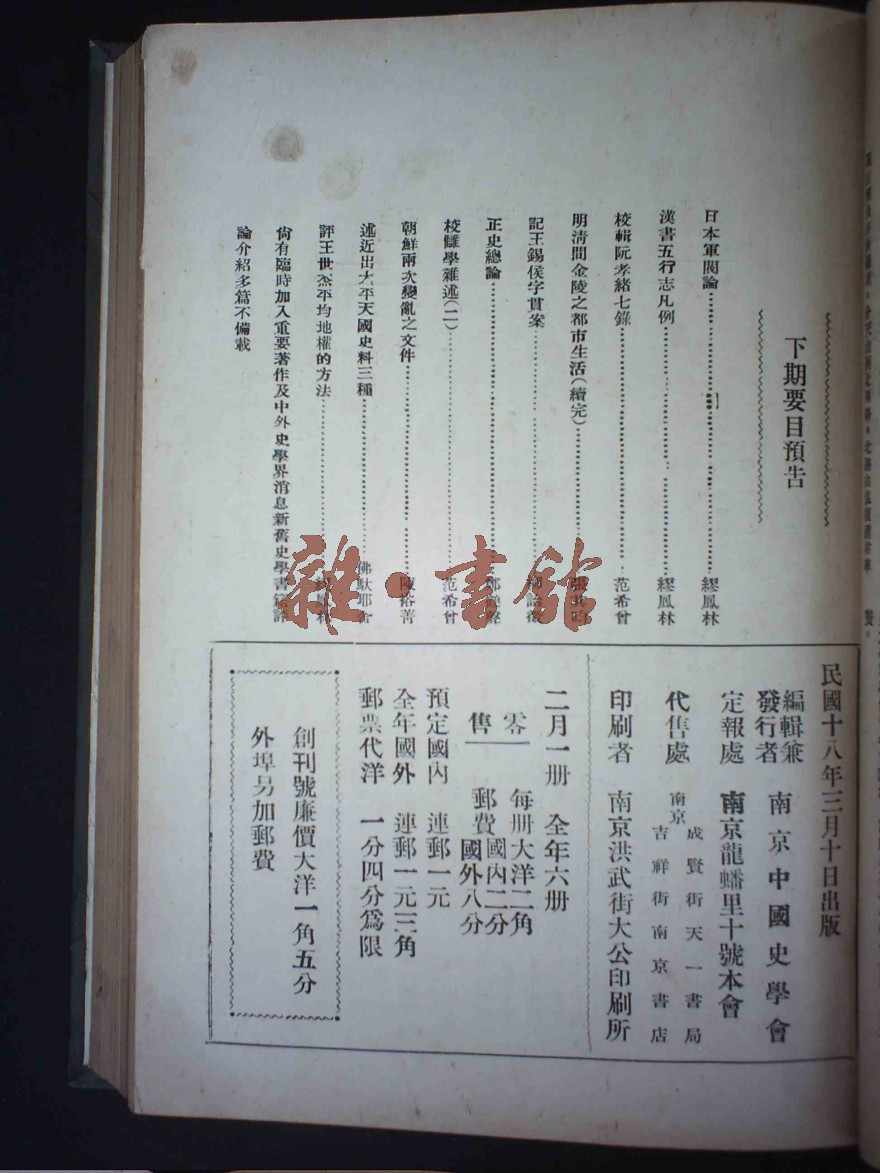 下期要目預告
日本軍閥論 繆鳳林
漢書五行志凡例 繆鳳林
校輯阮孝緒七錄 范希曾
明清間金陵之都市生活(續完) 張其昀
記王錫侯字貫案
正史總論 鄭鶴聲
校讎學雜述(二) 范希曾
朝鮮兩次變亂之文件 陳
述近出太平天國史料三種 佛馱耶舍
評王世杰平均地權的方法 繆鳳林
尚有臨時加入重要著作及中外史學界消息新舊史學書籍評
論介紹多篇不備載
民國十八年三月十日出版
編輯兼發行者 南京中國史學會
定報處 南京龍蟠里十號本會
代售處 南京 成賢街天一書局
吉祥街南京書店
印刷者 南京洪武街大公印刷所
二月一册 全年六册
零售 每冊大洋二角
郵費 國內二分
國外八分
預定國內 連郵一元
全年國外 連郵一元三角
郵票代洋 一分四分爲限
創刊號廉價大洋一角五分
外埠另加郵費
雜·書館